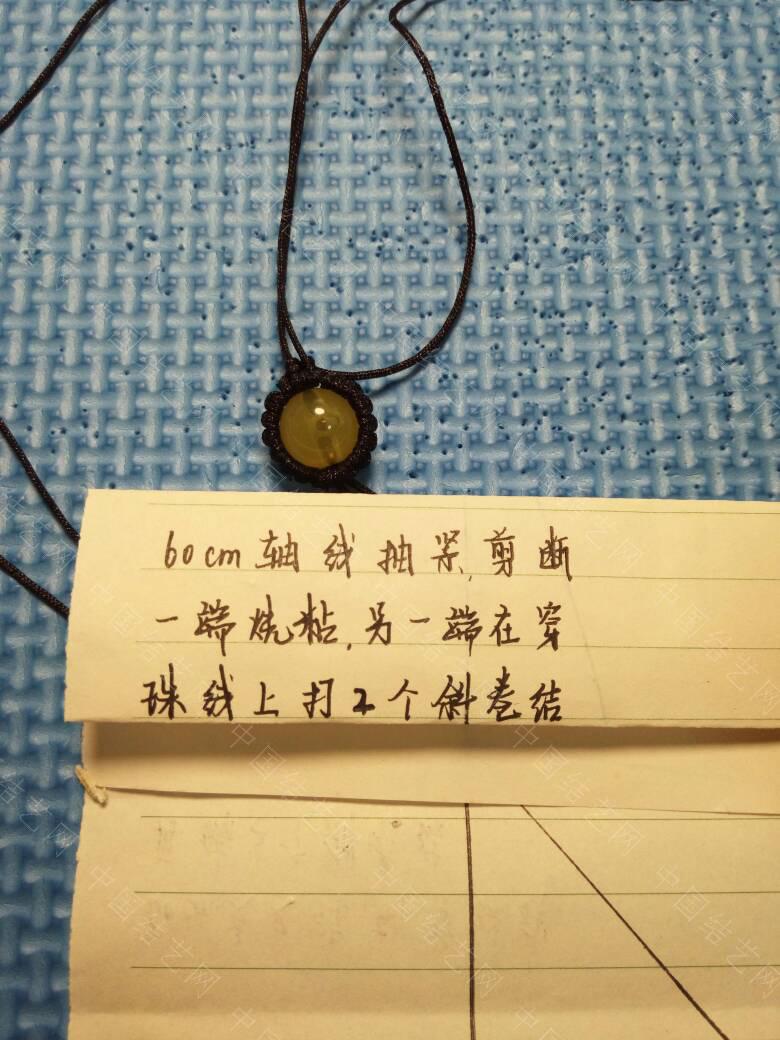 60cm轴线抽紧,剪断
一端烧粘,另一端在穿
珠线上打2个斜卷结
中国结艺网